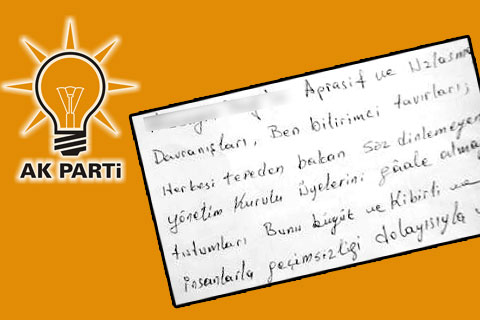 AK PARTi
Aprasif ve Uzlaşma
Davranışları, Ben bilirimci tavırları,
Herkesi tereden bakan Söz dinlemeyen
yönetim Kurulu üyelerini gâale alma
tutumları Bunu büyük ve Kibirli ve
insanlarla geçimsizliği dolayısıyla